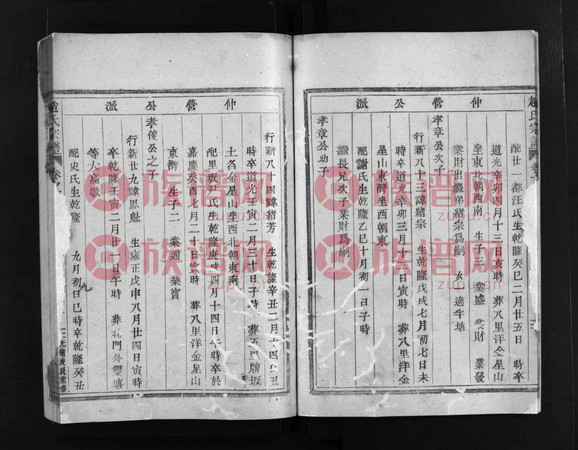 趙氏宗譜
仲營公派
配廿 都汪氏生乾隆癸巳二月廿五日 時卒
道光辛卯四月十三日亥時 葬八里洋金星山
坐東北朝西南 生子三 業盛 業財 業發
業財出繼弟緒宗為嗣 女一適半塘
孝章公次子
行新八十三諱緒宗 生乾隆戊戌七月初七日未
時卒道光辛卯三月十二日寅時 葬八里洋金
星山東灣坐西朝東
配謝氏生乾隆乙巳十月初一日子時
繼長兄次子業財為嗣
孝章公幼子
仲營公派
行新八十四諱緒芳 生乾隆辛丑二月十四日丑
時卒道光子寅二月二十日子時 葬五里牌坂
土名金星山坐西北朝東南
配里坂尹氏生乾隆庚時四月十四日午時卒於
嘉慶癸酉七月二十日寅時 葬八里洋金星山
東灣 生子二 業通 業寶
孝俊公之子
行新廿九諱思魁 生雍正戊申八月廿四日寅時
卒乾隆壬寅二月廿一日午時 葬花門外雙墳
等人高墩
配史氏生乾隆 九月初日巳時卒乾隆癸丑
趙氏宗譜
族譜网
族譜网